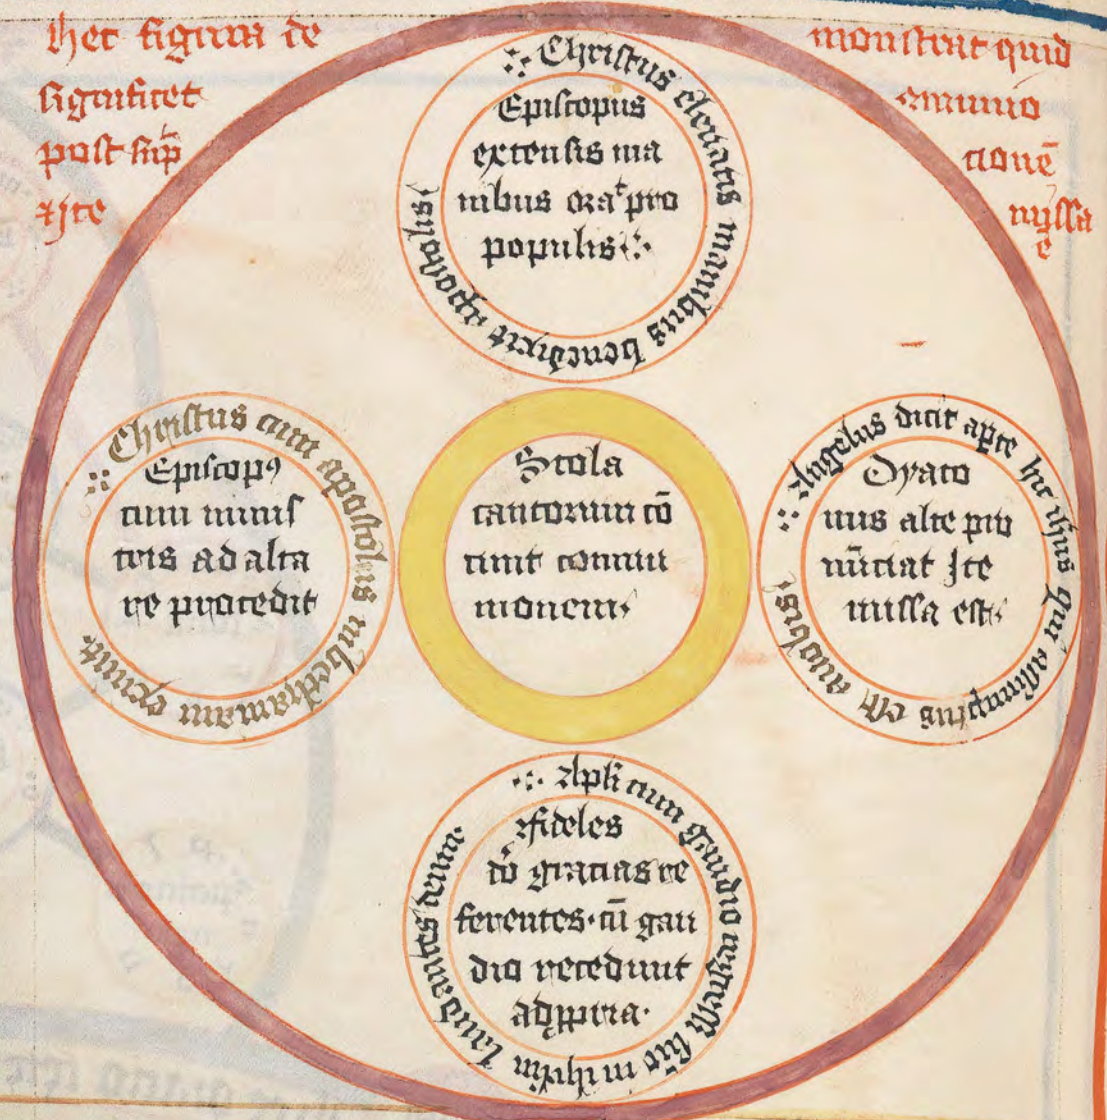 hec figura de monstrat quid
significet communio
post sūp̄ cionē
ite missa ē
∴ Christus eleuatis manibus benedixit apostolis
Episcopus
extensis ma
nibus orat pro
populis
∴ Christus cum apostolis in bethaniam exiuit
Episcopꝰ
cum minis
tris ad alta
re procedit
Scola
cantorum cō
cinit comm
monem
∴ Angelus dicit apte hic ihus qui assumptus est a uobis
Dyaco
nus alte pro
nūciat Ite
missa est
∴ Apli cum gaudio regressi sūt in ihrlm laudantes deum
fideles
dō gracias re
ferentes cū gau
dio recedunt
ad ꝓpria